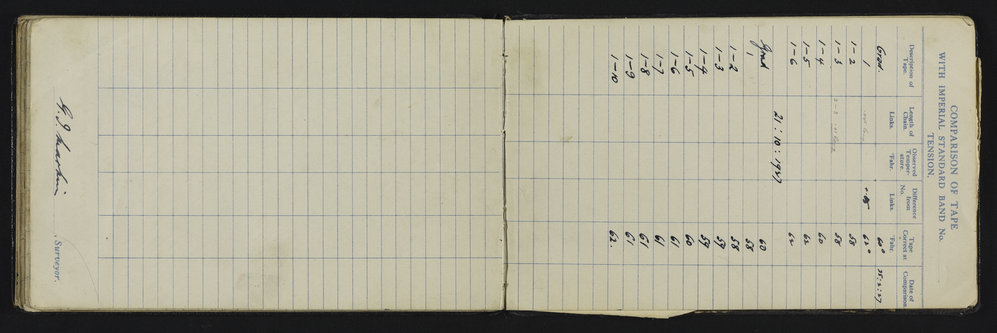 COMPARISON OF TAPE
WITH IMPERIAL STANDARD BAND No.
TENSION.
Description of Tape. Length of Chain Links. Observed Temperature. °Fahr. Difference from No. Links. Tape Correct at °Fahr. Date of Comparison
Grad. 60° 25:2:27
1 +.05 62°
1-2 58
1-3 58
1-4 60
1-5 62
1-6 62
21:10:1927
Grad 60
1 58
1-2 58
1-3 59
1-4 59
1-5 60
1-6 61
1-7 61
1-8 61
1-9 61
1-10 62.
Surveyor.